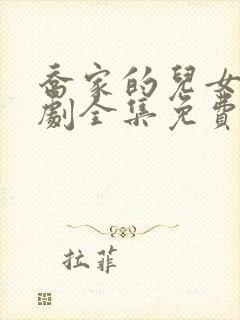 喬家的兒女
劇全集免費
拉菲